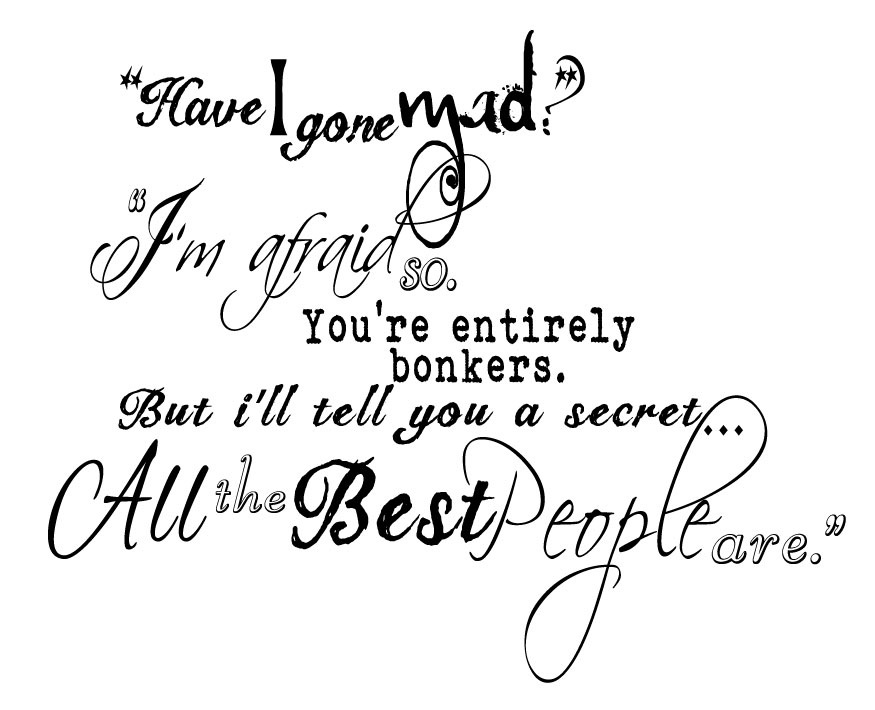 "Have I gone mad?"
"I'm afraid so.
You're entirely
bonkers.
But i'll tell you a secret...
All the Best People are."